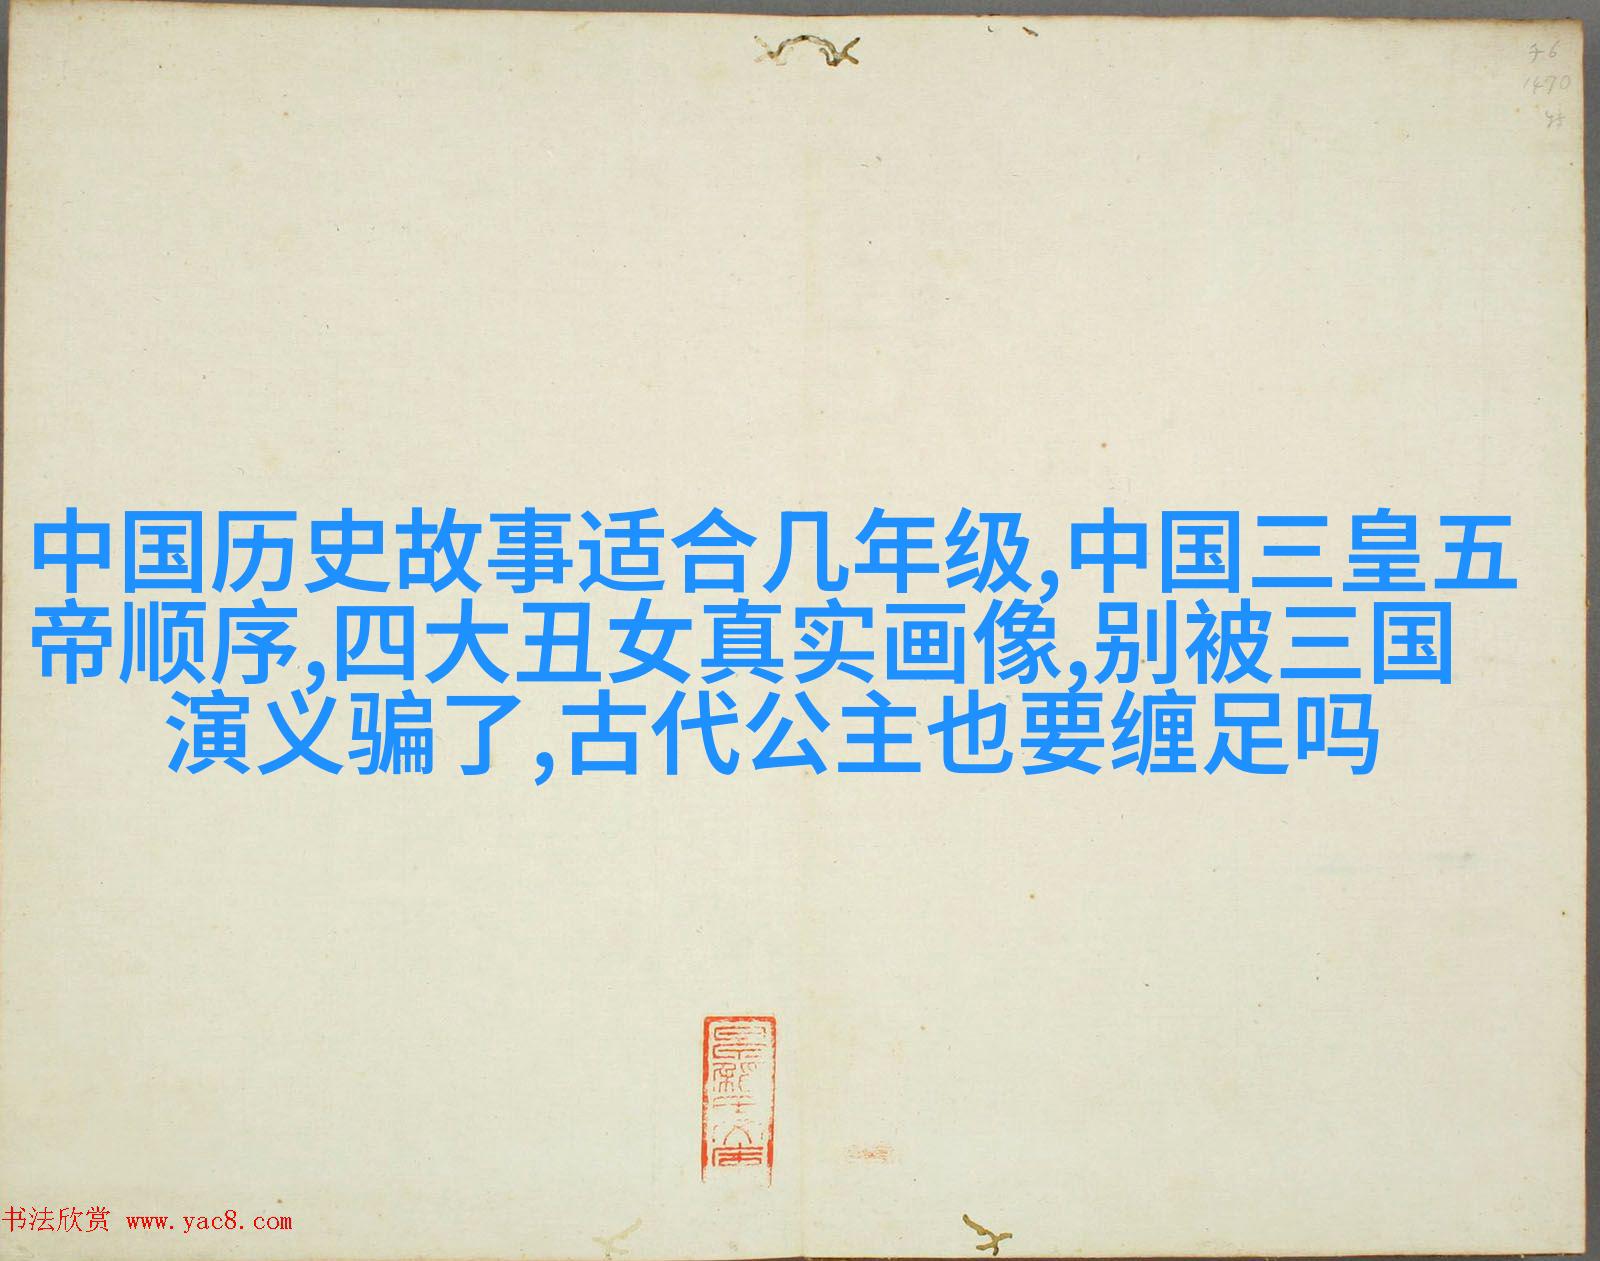 1470
中国历史故事适合几年级,中国三皇五
帝顺序,四大丑女真实画像,别被三国
演义骗了,古代公主也要缠足吗
书法欣赏 www.yac8.com